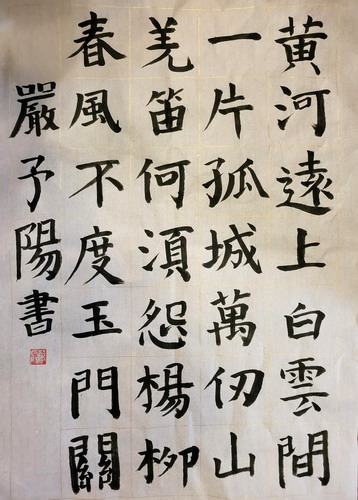 黄河遠上白雲間
一片孤城萬仞山
羌笛何須怨楊柳
春風不度玉門關
嚴予陽書